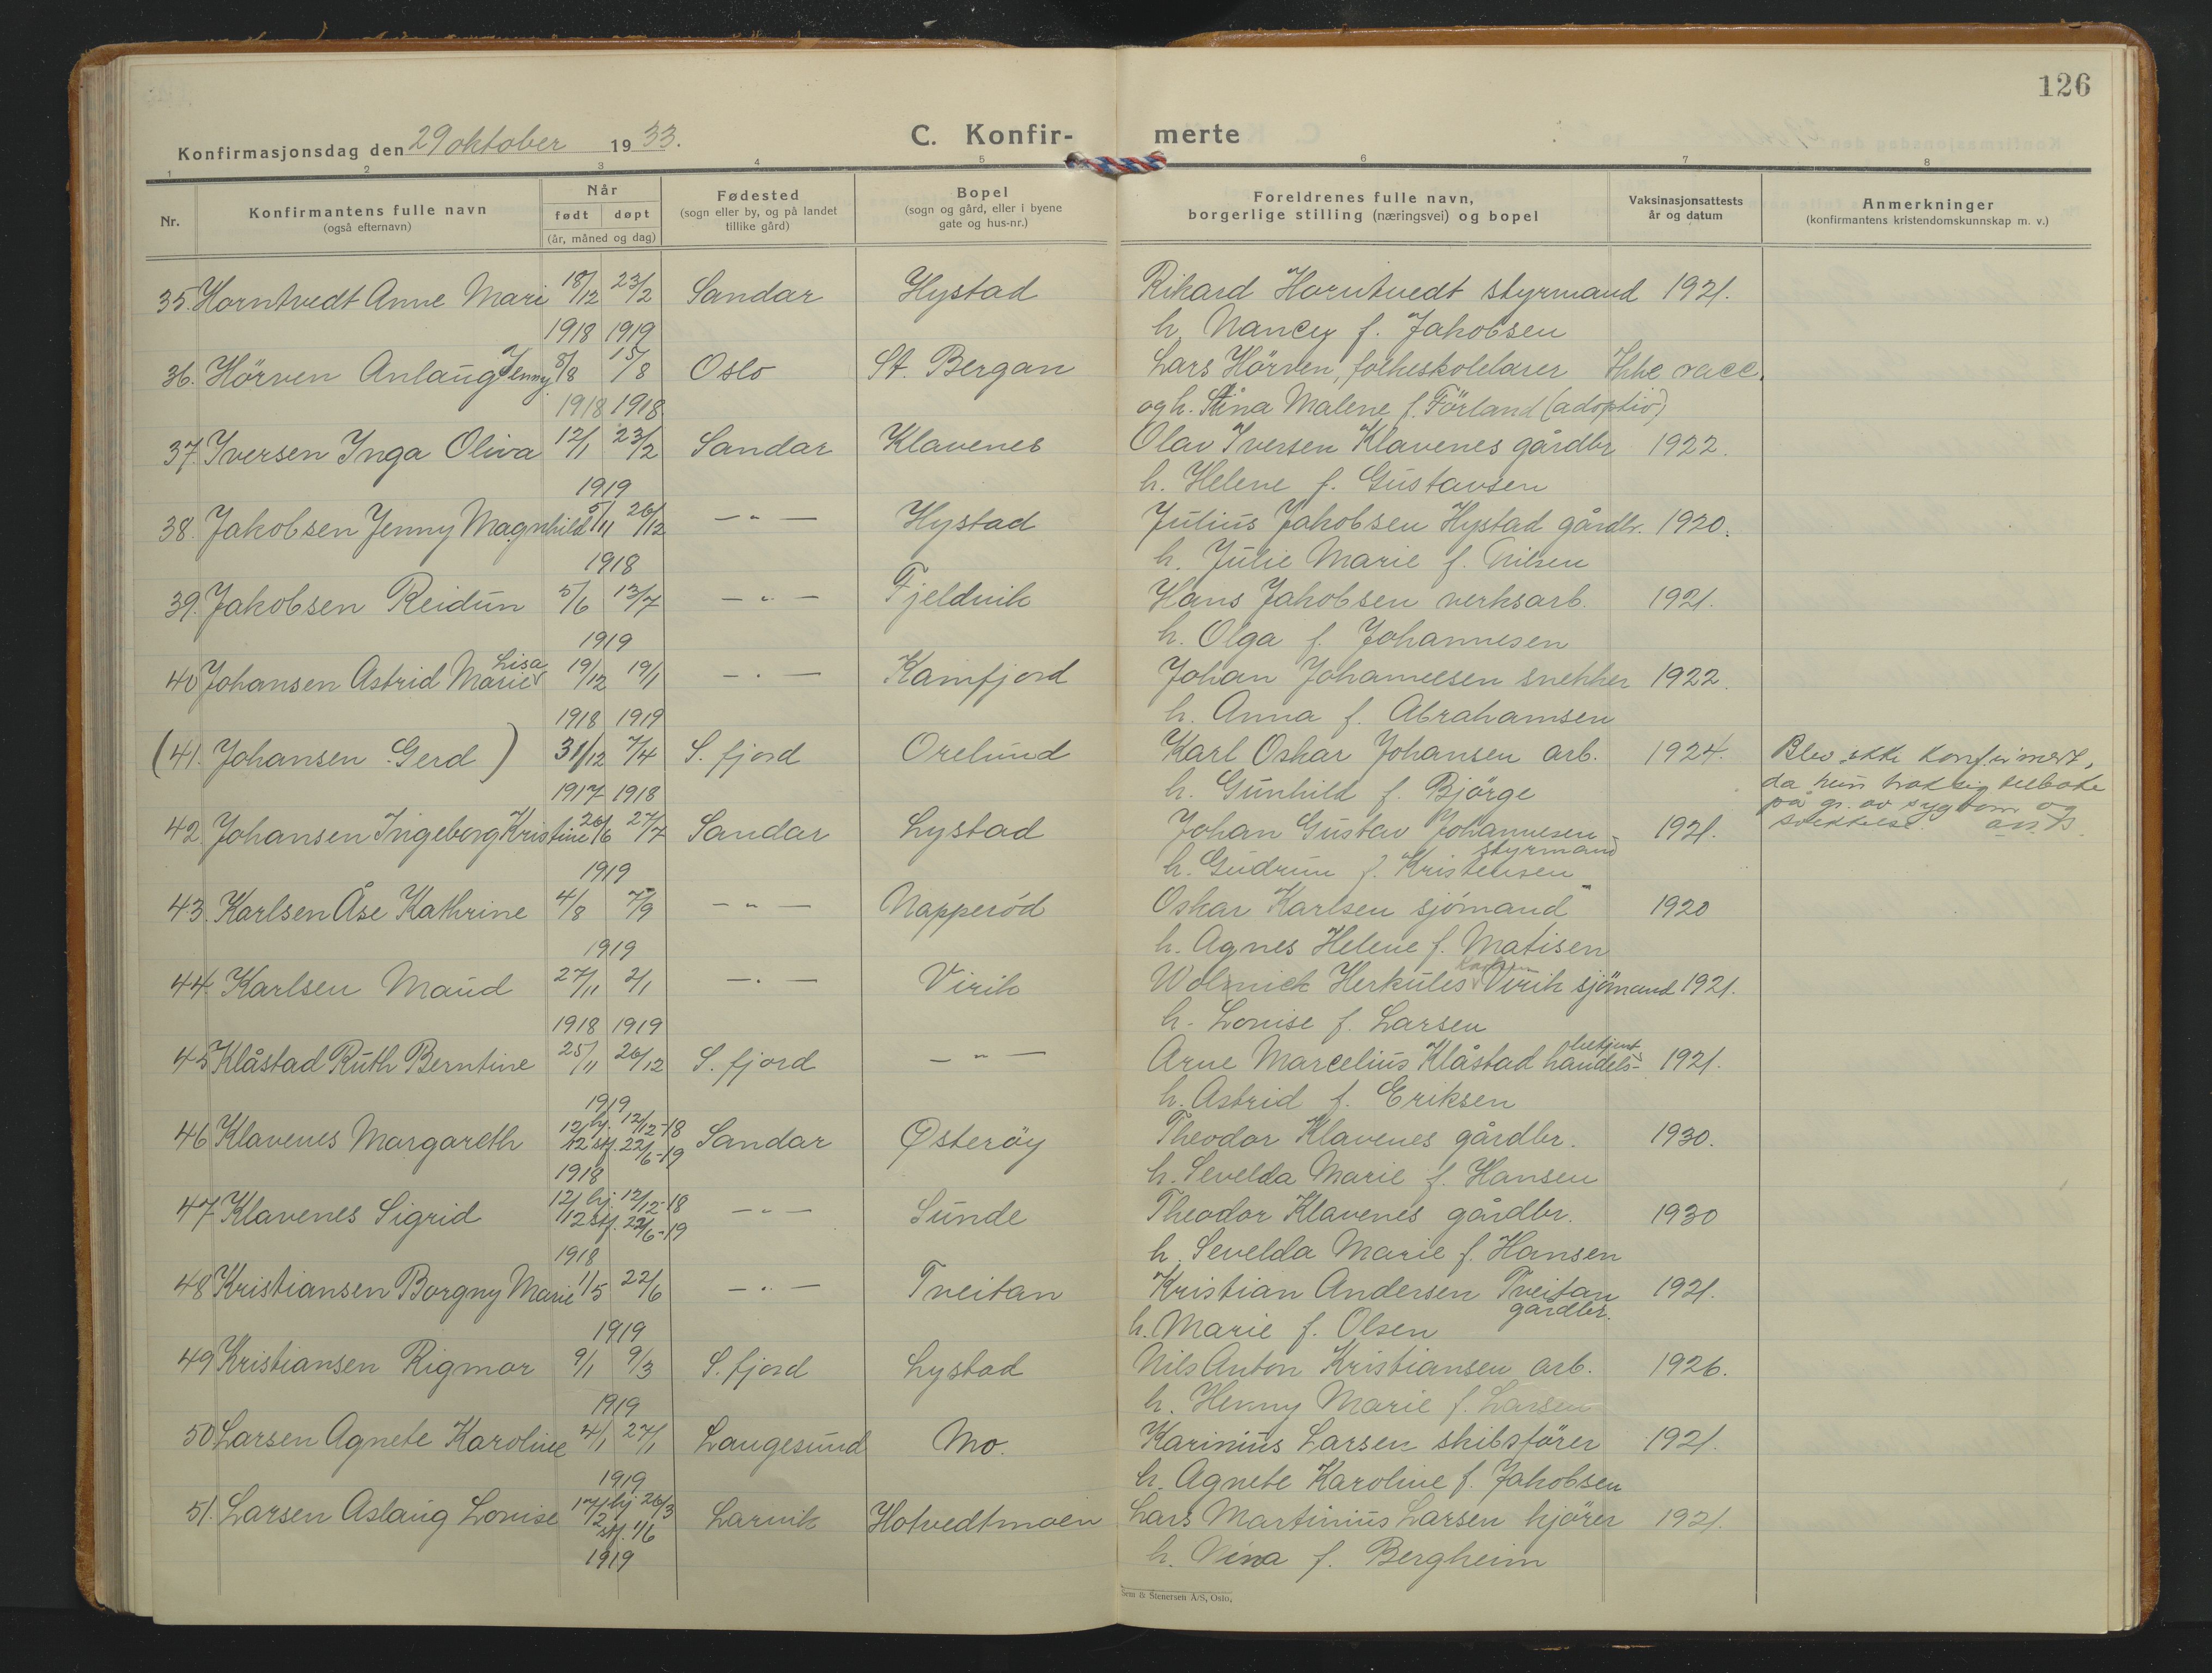 126
Konfirmasjonsdag den 29 oktober 1933.
C. Konfir- merte
1 2 3 4 5 6 7 8
Nr.
Konfirmantens fulle navn
(også efternavn)
Når
født døpt
(år, måned og dag)
Fødested
(sogn eller by, og på landet
tillike gård)
Bopel
(sogn og gård, eller i byene
gate og hus-nr.)
Foreldrenes fulle navn,
borgerlige stilling (næringsvei) og bopel
Vaksinasjonsattests
år og datum
Anmerkninger
(konfirmantens kristendomskunnskap m. v.)
35. Horntvedt Anne Mari 18/12 23/2 Sandar Hystad Rikard Horntvedt styrmand 1921.
1918 1919 h. Nancy f. Jakobsen
36. Hörven Anlaug Jenny 8/8 15/8 Oslo St. Bergan Lars Hörven, folkeskolelærer Ikke vacc.
1918 1918 og h. Stina Malene f. Förland (adoptiv)
37. Iversen Inga Oliva 12/1 23/2 Sandar Klavenes Olav Iversen Klavenes gårdbr 1922.
1919 h. Helene f. Gustavsen
38. Jakobsen Jenny Magnhild 5/11 26/12 — " — Hystad Julius Jakobsen Hystad gårdbr. 1920.
1918 h. Julie Marie f. Nilsen
39. Jakobsen Reidun 5/6 13/7 — " — Fjeldvik Hans Jakobsen verksarb. 1921.
1919 h. Olga f. Johannesen
40 Johansen Astrid Marie Lisa 19/12 19/1 — " — Kamfjord Johan Johannesen snekker 1922.
1918 1919 h. Anna f. Abrahamsen
(41. Johansen Gerd) 31/12 7/4 S. fjord Orelund Karl Oskar Johansen arb. 1924. Blev ikke konfirmert,
1917 1918 h. Gunhild f. Bjørge da hun trak sig tilbake
på gr. av sygdom og
svekkelse.
42. Johansen Ingeborg Kristine 26/6 27/7 Sandar Lystad Johan Gustav Johannesen - styrmand 1921.
1919 h. Gudrun f. Kristensen
43. Karlsen Åse Kathrine 4/8 7/9 — " — Napperød Oskar Karlsen sjömand 1920
1919 h. Agnes Helene f. Matisen
44. Karlsen Maud 27/11 2/1 — " — Virik Wolmick Herkules Karlsen Virik sjömand 1921.
1918 1919 h. Louise f. Larsen
45 Klåstad Ruth Berntine 25/11 26/12 S. fjord — " — Arne Marcelius Klåstad handels-betjent 1921.
1919 h. Astrid f. Eriksen
46 Klavenes Margareth 12/12 hj. 12/12-18 stf. 22/6-19 Sandar Østerøy Theodor Klavenes gårdbr. 1930.
1918 h. Sevelda Marie f. Hansen
47 Klavenes Sigrid 12/12 hj. 12/12-18 stf. 22/6-19 — " — Sunde Theodor Klavenes gårdbr. 1930
1918 h. Sevelda Marie f. Hansen
48 Kristiansen Borgny Marie 1/5 22/6 — " — Tveitan Kristian Andersen Tveitan gårdbr. 1921.
1919 h. Marie f. Olsen
49 Kristiansen Rigmor 9/1 9/3 S. fjord Lystad Nils Anton Kristiansen arb. 1926.
1919 h. Henny Marie f. Larsen
50 Larsen Agnete Karoline 4/1 27/1 Langesund Mo. Karinius Larsen skibsfører 1921.
1919 h. Agnete Karoline f. Jakobsen
51. Larsen Aslaug Louise 17/2 hj 26/3 stf. 1/6 Larvik Hotvedtmoen Lars Martinius Larsen kjører 1921.
1919 h. Nina f. Bergheim
Sem & Stenersen A/S, Oslo.